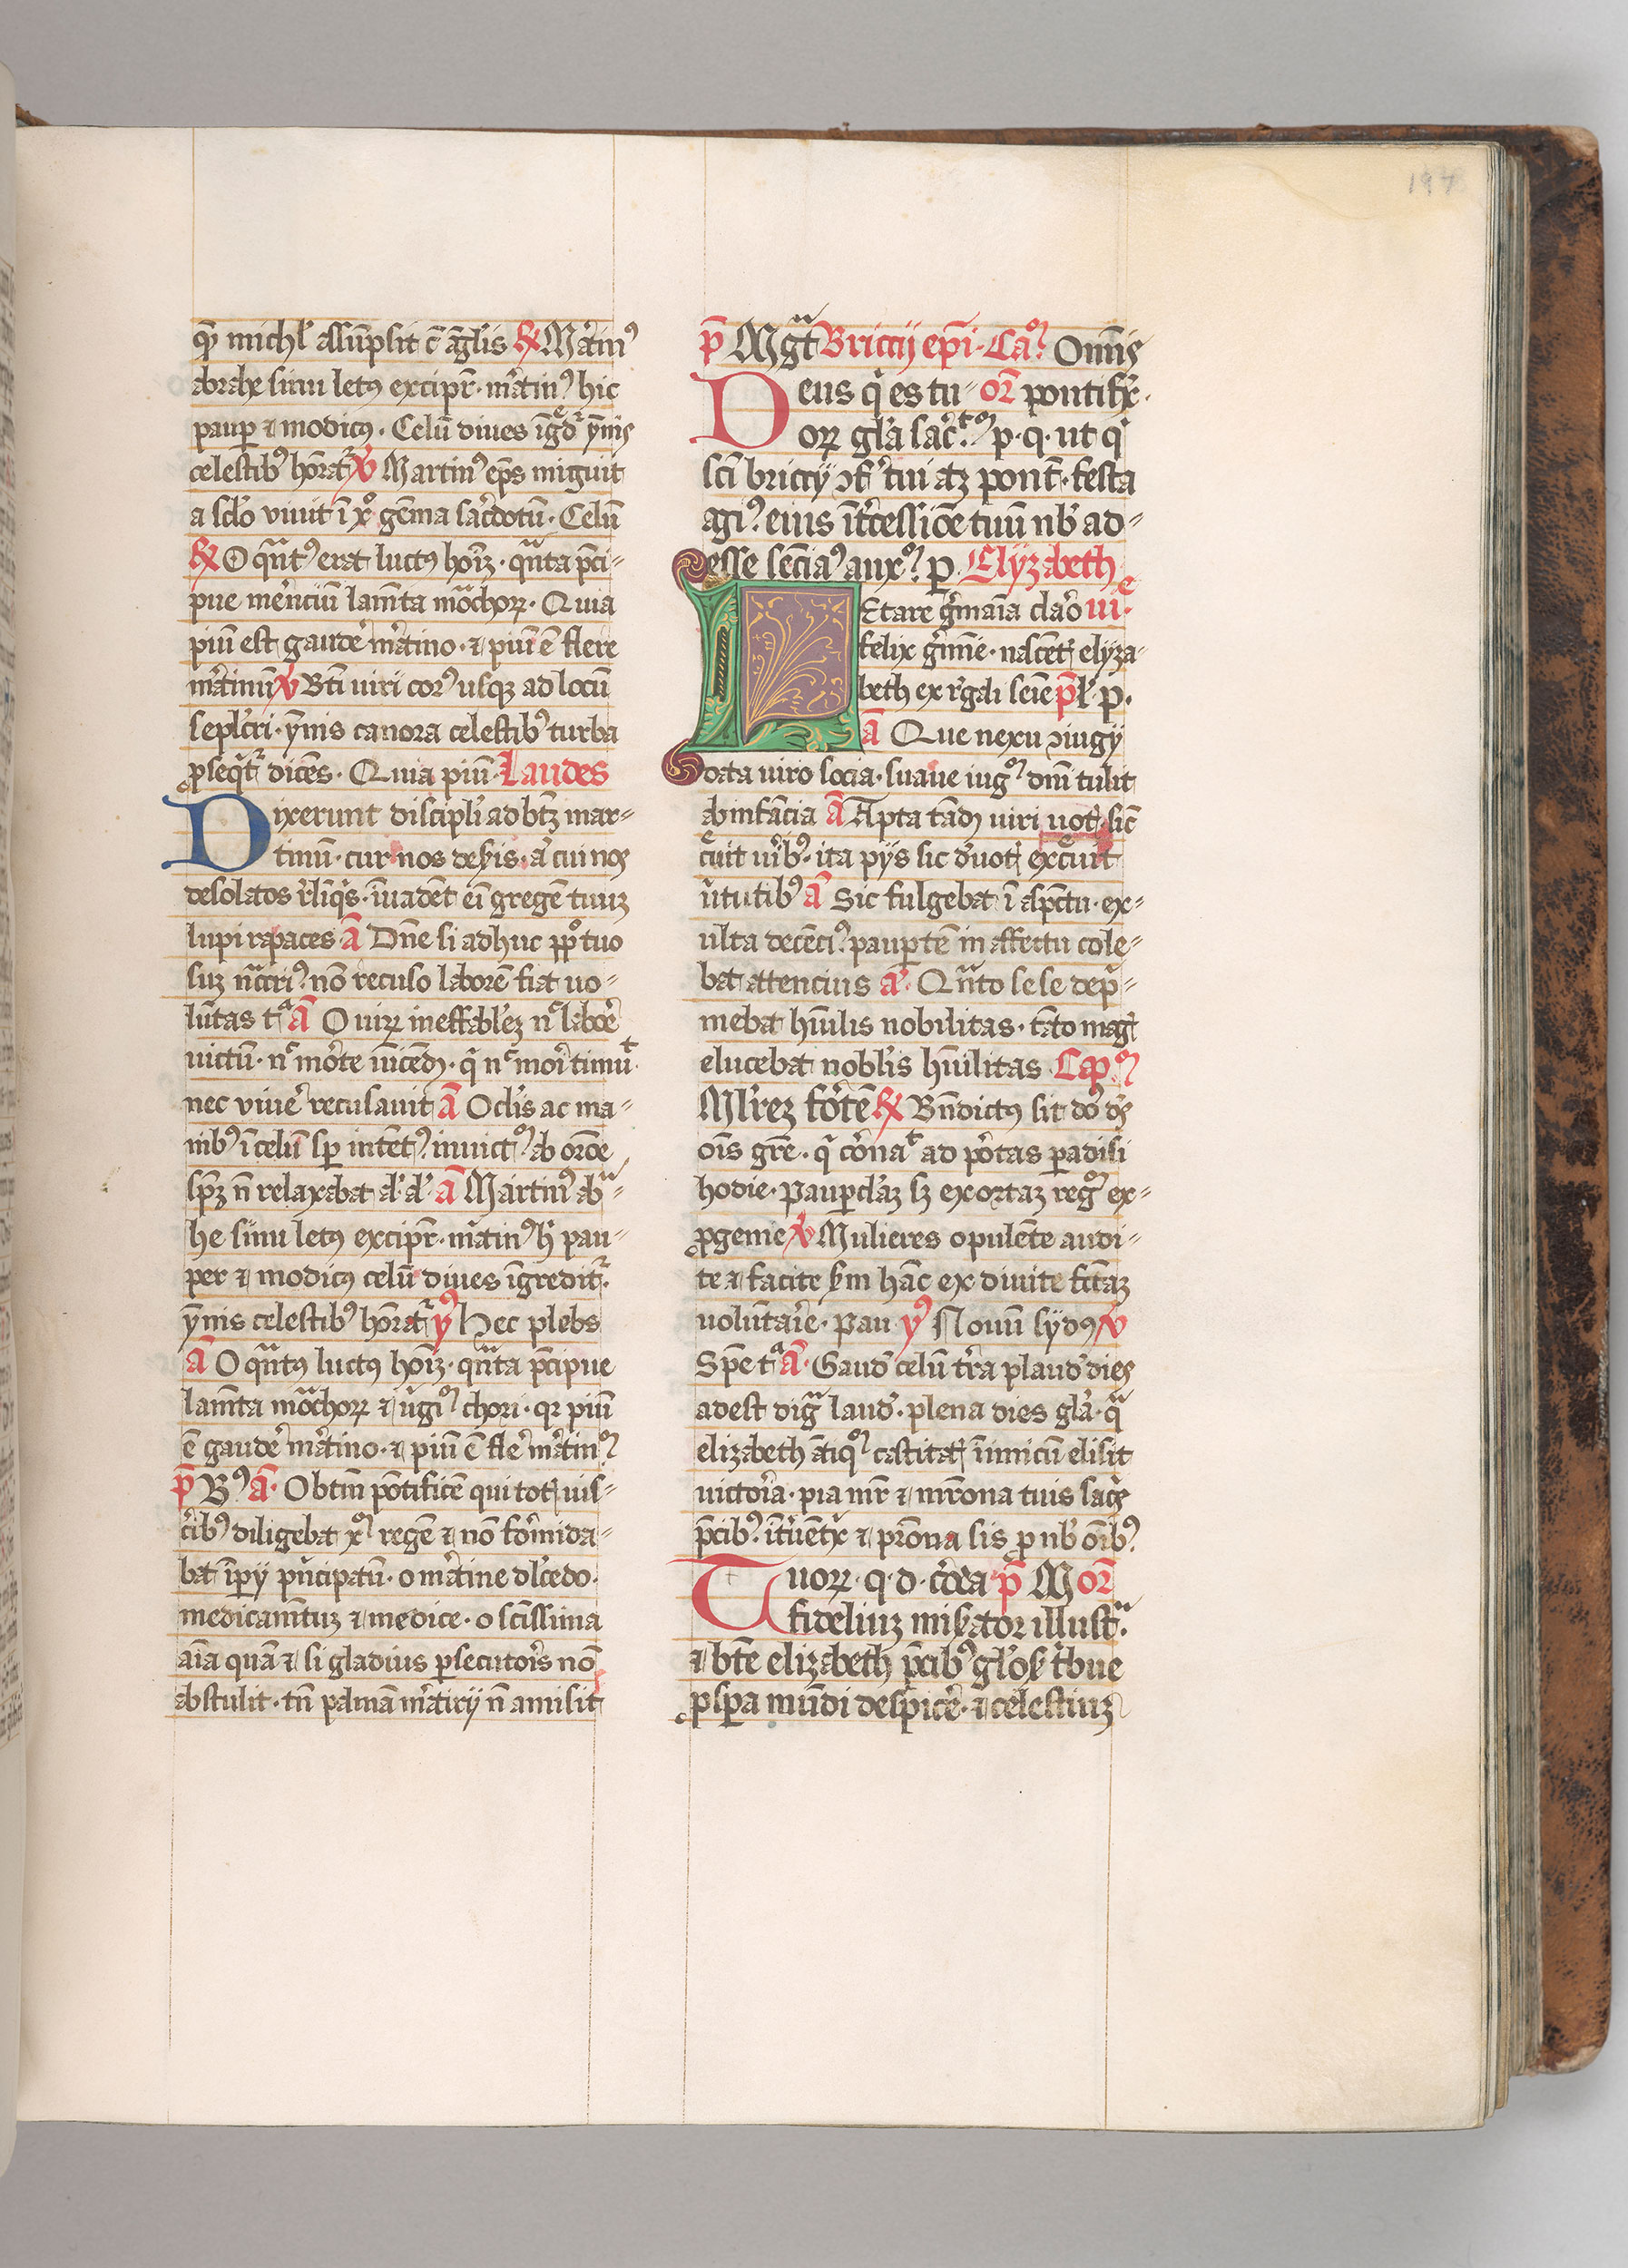 quē michl' assūpsit c̄ āgl'is R̷ M̄rtin⁹
abrahe sinu letꝰ excipr̄· m̄rtin⁹ hic
paup̄ ⁊ modicꝰ· Celū diues īgdr̄ ȳnis
celestib⁹ hōrat̄ V̷ Martin⁹ ep̄s miguit
a sclo viuit ī xp̄o gēma sac̄dotū· Celū
R̷ O qn̄t⁹ erat luctꝰ hoīꝫ· qn̄ta p̄ci-
pue mer̄ciū lam̄ta mōchoꝝ· Quia
piū est gaude' m̄rtino· ⁊ piū ē flere
m̄rtinū V̷ Bt̄i uiri cor⁹ usqꝫ ad locū
sepl'cri· ȳnis canora celestib⁹ turba
ꝓseqt̄ dicēs· Quia piū· Laudes
Dixerunt discipl'i ad bt̄ꝫ mar-
tinū· cur nos deseris· a' cui nos
desolatos rl̄iqs· īuadēt eī gregē tuuꝫ
lupi rapaces ā Dn̄e si adhuc pp̄lo tuo
suꝫ nccri⁹· nō recuso laborē fiat uo-
lūtas tᵃ ā O uiꝝ ineffabl'eꝫ nᶜ labōe
victū· nᶜ mōrte vīcēdꝰ· q̄ nᶜ morī timuᵗ
nec viue' recusauit ā Ocl'is ac ma-
nib⁹ ī celū sp̄ intēt⁹· inuictū ab orōe
sp̄ꝫ n̄ relaxabat al'al' ā Martin⁹ abᵃ-
he sinu letꝰ excipr̄· m̄rtin⁹ h̄ pau-
per ⁊ modicꝰ celū diues īgredit̄·
ȳnis celestib⁹ hōrat̄ y⁹ Hec plebs
ā O qn̄tꝰ luctꝰ hoīꝫ· qn̄ta p̄cipue
lam̄ta mōchoꝝ ⁊ v̄giū chori· qr piū
ē gaude' m̄rtino· ⁊ piū ē fle' m̄rtinū
p̄ B⁹ ā· O btm̄ pōtificē qui tot̄ uis-
c̄ib⁹ diligebat xp̄m regē ⁊ nō formida-
bat īpij p̄ncipatū· o m̄rtine dl'cedo·
medicam̄tuꝫ ⁊ medice· o scīssima
aīa quā ⁊ si gladius ꝑsecutoris nō
abstulit· tn̄ palmā m̄rtirij n̄ amisit
p̄ Mgᵃt Briccij ep̄i· Caᵐ Om̄is
Deus q̄ es tu- or̄ pontifi·
oꝝ gl'a sac̄ᵗ⁹ p· q· ut q̄
sc̄i briccij ↄf' tui atꝫ pont̄· festa
agi⁹· eius īt̄cessiōe tuū nb' ad-
esse sēcia⁹ auxᵐ· p· Elyzabeth
LEtare ḡmaīa claro iii·
felix ḡmīe· nascēt̄ elyza-
beth ex r̄gali seīe p̄l' p·
ā Que nexu ↄiugij
data viro socia· suaue iugū dn̄i tulit
ab infācia ā Apta tādꝰ viri vot̄· sic̄
c̄uit vr̄ib⁹· ita pijs sic d'uot̄ exc̄uit
v̄tutib⁹ ā Sic fulgebat ī aspc̄tu· ex-
ulta decēci⁹ paup̄tē in affectu cole-
bat attencius ā Qn̄to se se dep̄-
mebat hūilis nobilitas· tāto magꝭ
elucebat nobl'is hūilitas Capᵐ
Ml'reꝫ fōrtē R̷ Bn̄dictꝰ sit do' dꝰ
oīs grē· q̄ cōrnaᵗ ad pōrtas ꝑadisi
hodie· Paup̄claꝫ sꝫ exortaꝫ regū ex-
ꝓgenie V̷ Mulieres opulēte audi-
te ⁊ facite sm̄ hāc ex diuite fc̄taꝫ
volūtarie· Pau y⁹ Nouū sydꝰ V̷
Spē tᵃ ā· Gaud' celū tr̄ra plaud' dies
adest digᵃ laud'· plena dies gl'a· qᵃ
elizabeth ātiqū castitat̄ īimicū elisit
victoria· pia mr̄ ⁊ mr̄ona tuis sacꝭ
p̄cib⁹· īt̄uēt'x ⁊ pr̄ona sis ꝓ nb' oīb⁹
Tuoꝝ· q· d· cōrda p̄ M or̄
fideliuꝫ miserator illustᵃ·
⁊ bt̄e elizabeth p̄cib⁹ gl'os' t̄bue
ꝓspa mūdi despicē· ⁊ celestiuꝫ